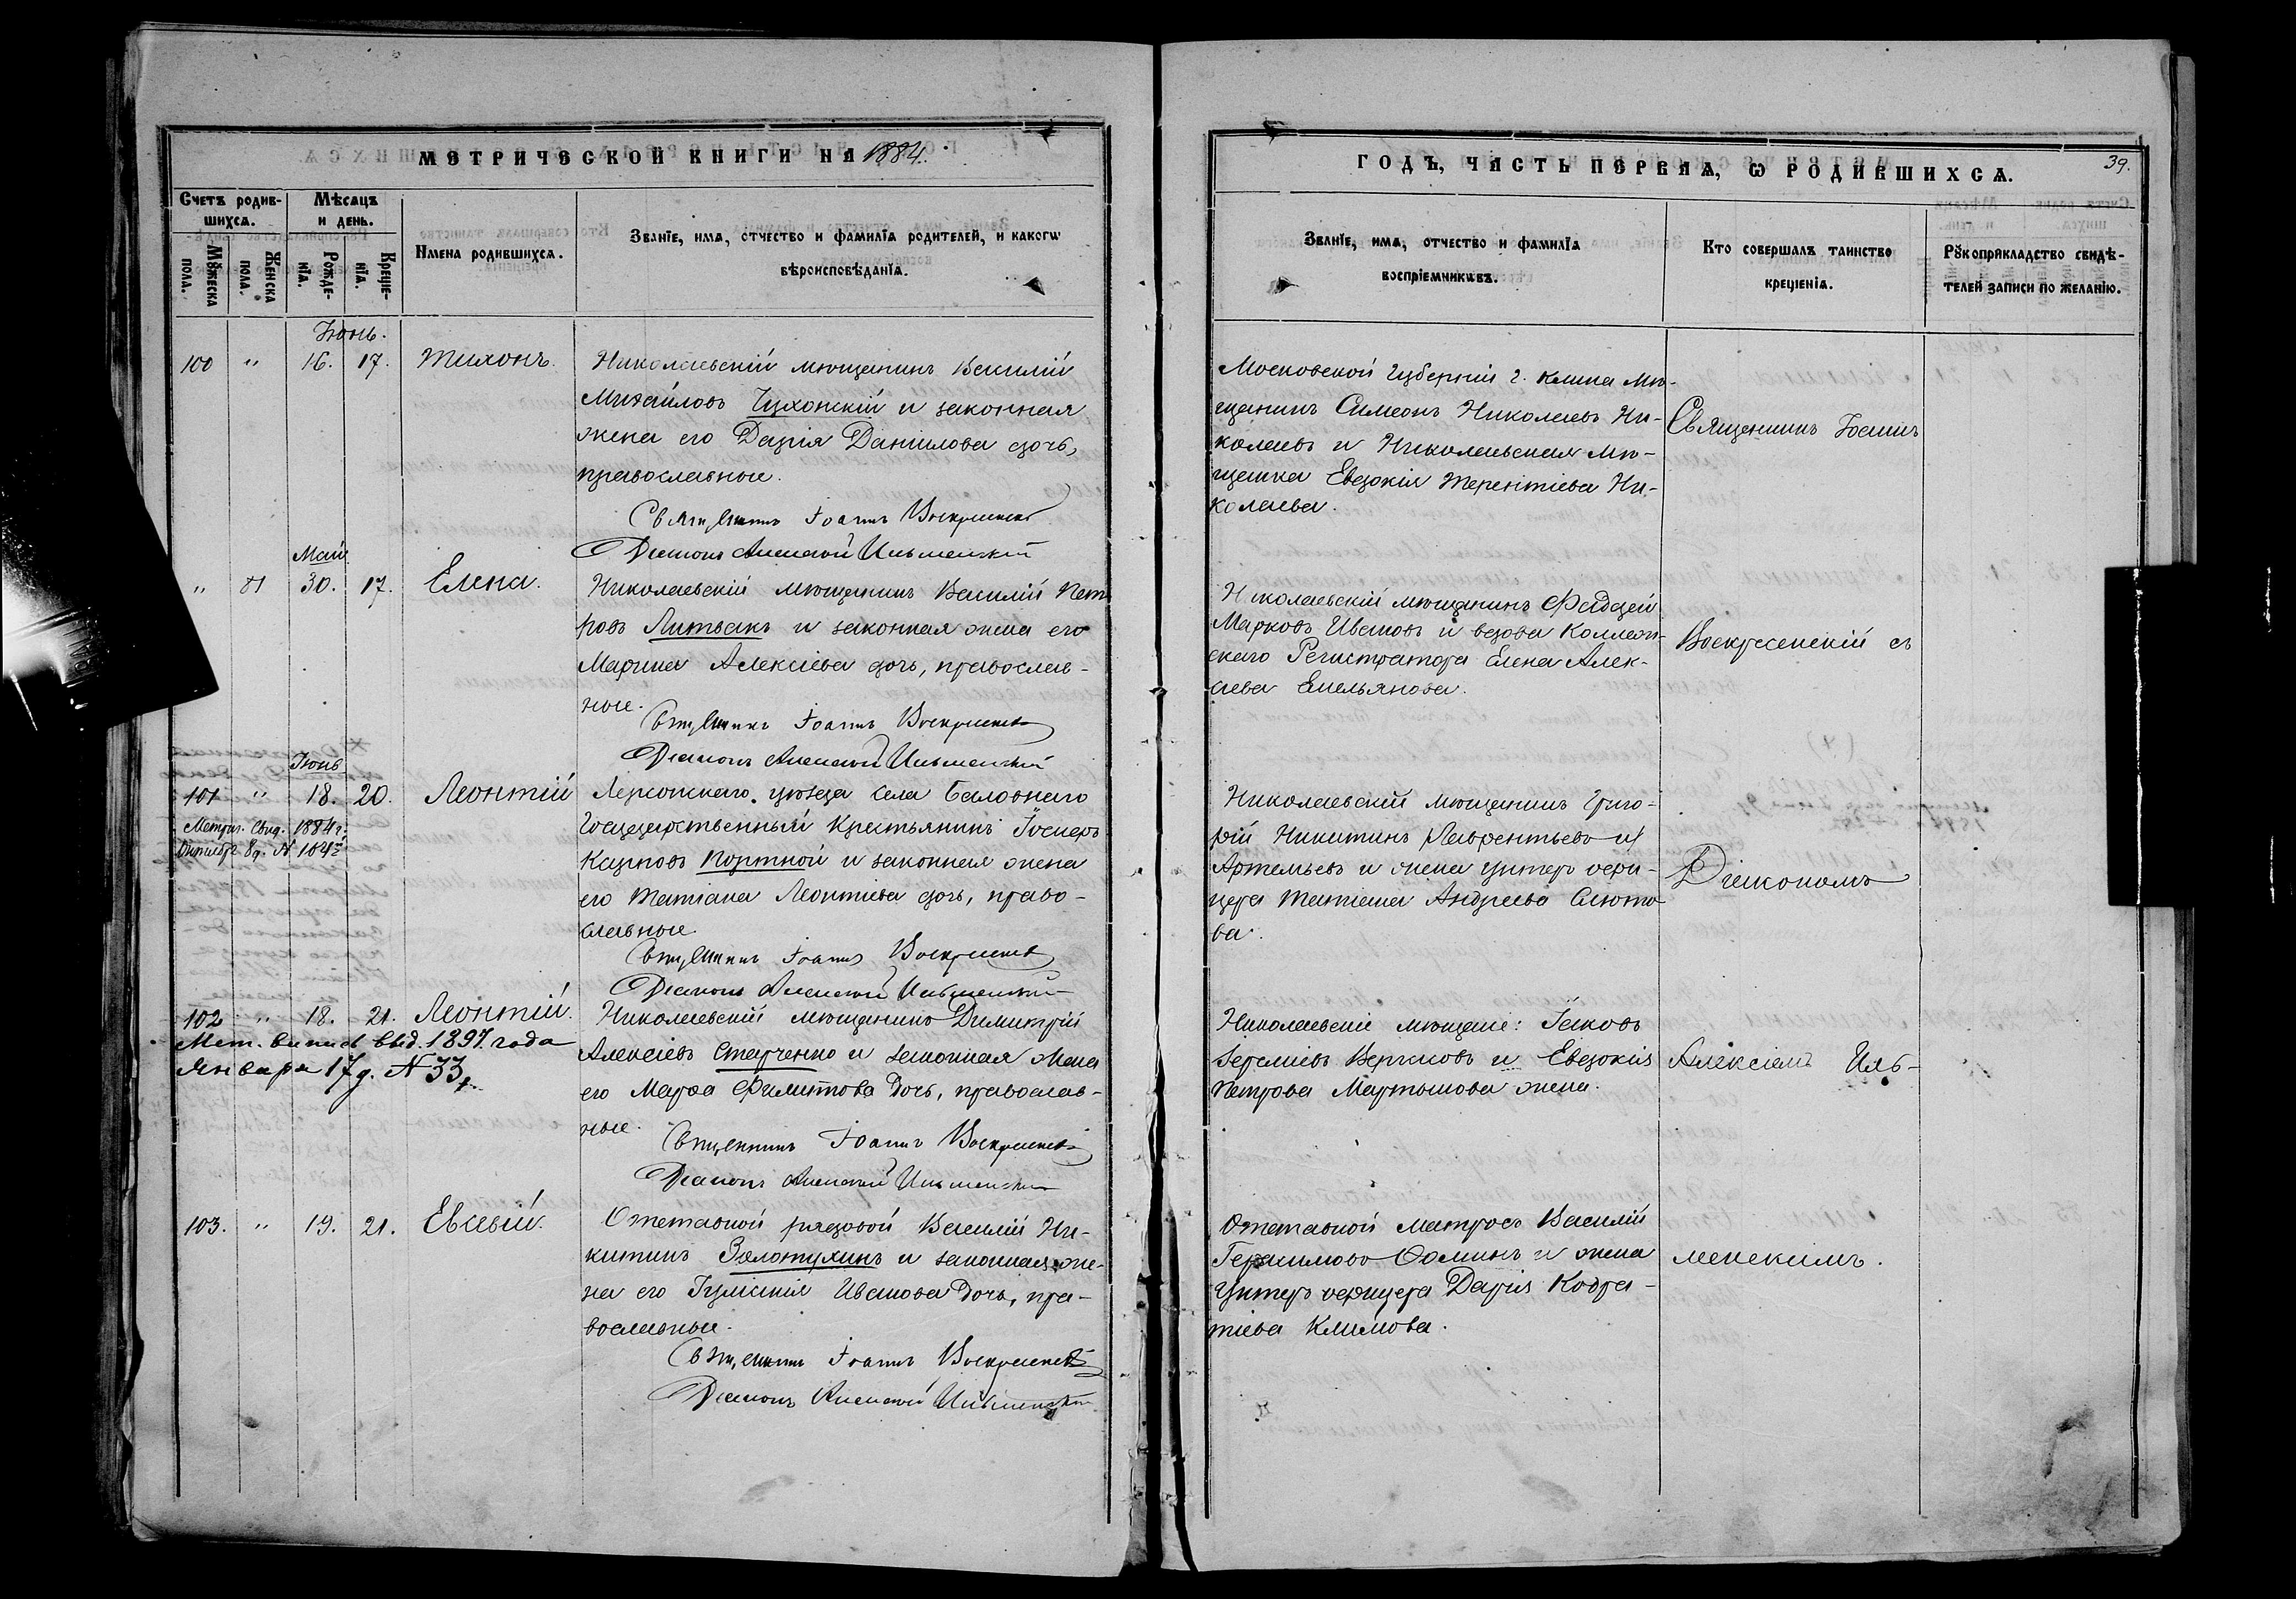 МЕТРИЧЕСКОЙ КНИГИ НА 1884.
Счетъ родив-
шихсѧ.
Мѣсяцъ
и день.
Мꙋжеска
пола.
Женска
пола.
Рожде-
нїѧ.
Креще-
нїѧ.
Имена родившихсѧ.
Званїе, имѧ, отчество и фамилїѧ родителей, и какогѡ
вѣроисповѣданїѧ.
Іюнь.
100 " 16. 17. Тихонъ.
Николаевскій мѣщанинъ Василій
Михайловъ Чухонскій и законная
жена его Дарія Даніилова дочь,
православные.
Священникъ Іоаннъ Воскресенскій
Діаконъ Алексей Ильменскій
Май
" 81 30. 17. Елена.
Николаевскій мѣщанинъ Василій Пет-
ровъ Литвакъ и законная жена его
Марина Алексіева дочь, православ-
ные.
Священникъ Іоаннъ Воскресенскій
Діаконъ Алексей Ильменскій
Іюнь
101 " 18. 20. Леонтій
Метрич. свид. 1884 г.
Октября 8 д. №
уѣзда села Баловнаго
Государственный крестьянинъ Іосифъ
Карповъ Портной и законная жена
его Татіана Леонтіева дочь, право-
славные.
Священникъ Іоаннъ Воскресенскій
Діаконъ Алексей Ильменскій
102 " 18. 21. Леонтій.
Мет. выпись выд. 1897. года
Января 17 д. № 33
Николаевскій мѣщанинъ Димитрій
Алексіевъ Старченко и законная жена
его Марѳа Филиппова дочь, православ-
ные.
Священникъ Іоаннъ Воскресенскій
Діаконъ Алексей Ильменскій
103. " 19. 21. Евсевій.
Отставной рядовой Василій Ни-
китинъ Золотухинъ и законная же-
на его Іуліанія Иванова дочь, пра-
вославные.
Священникъ Іоаннъ Воскресенскій
Діаконъ Алексей Ильменскій
ГОДЪ, ЧАСТЬ ПЕРВАѦ, Ѡ РОДИВШИХСѦ.
39.
Званїе, имѧ, отчество и фамилїѧ
воспрїемникѡвъ.
Кто совершалъ таинство
крещенїѧ.
Рꙋкоприкладство свидѣ-
телей записи по желанїю.
Московской губерніи г. Клина мѣ-
щанинъ Симеонъ Николаевъ Ни-
колаевъ и Николаевская мѣ-
щанка Евдокія Терентіева Ни-
колаева.
Николаевскій мѣщанинъ Фаддей
Марковъ Ивановъ и вдова Коллеж-
скаго Регистратора Елена Алек-
сіева Емельянова.
Николаевскій мѣщанинъ Григо-
рій Никитинъ Лаврентьевъ и
Артемьевъ и жена унтеръ офи-
цера Татіана Андреева
ва.
Николаевскіе мѣщане: Іаковъ
Іереміевъ и Евдокія
Петрова Мартынова жена.
Отставной матросъ Василій
Герасимовъ Ѳоминъ и жена
унтеръ офицера Дарія Кодра-
тіева Климова.
Священникъ Іоаннъ
Воскресенскій съ
Діакономъ
Алексіемъ Иль-
менскимъ.